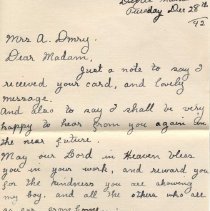 Tuesday Dec 28th
/42
Mrs A. Dmry.
Dear Madam,
Just a note to say I
received your card, and lovely
message.
And also to say I shall be very
happy to hear from you again in
the near future.
May our Lord in Heaven bless
you in your work, and reward you
for the kindness you are showing
my boy, and all the others who are
so far from home.